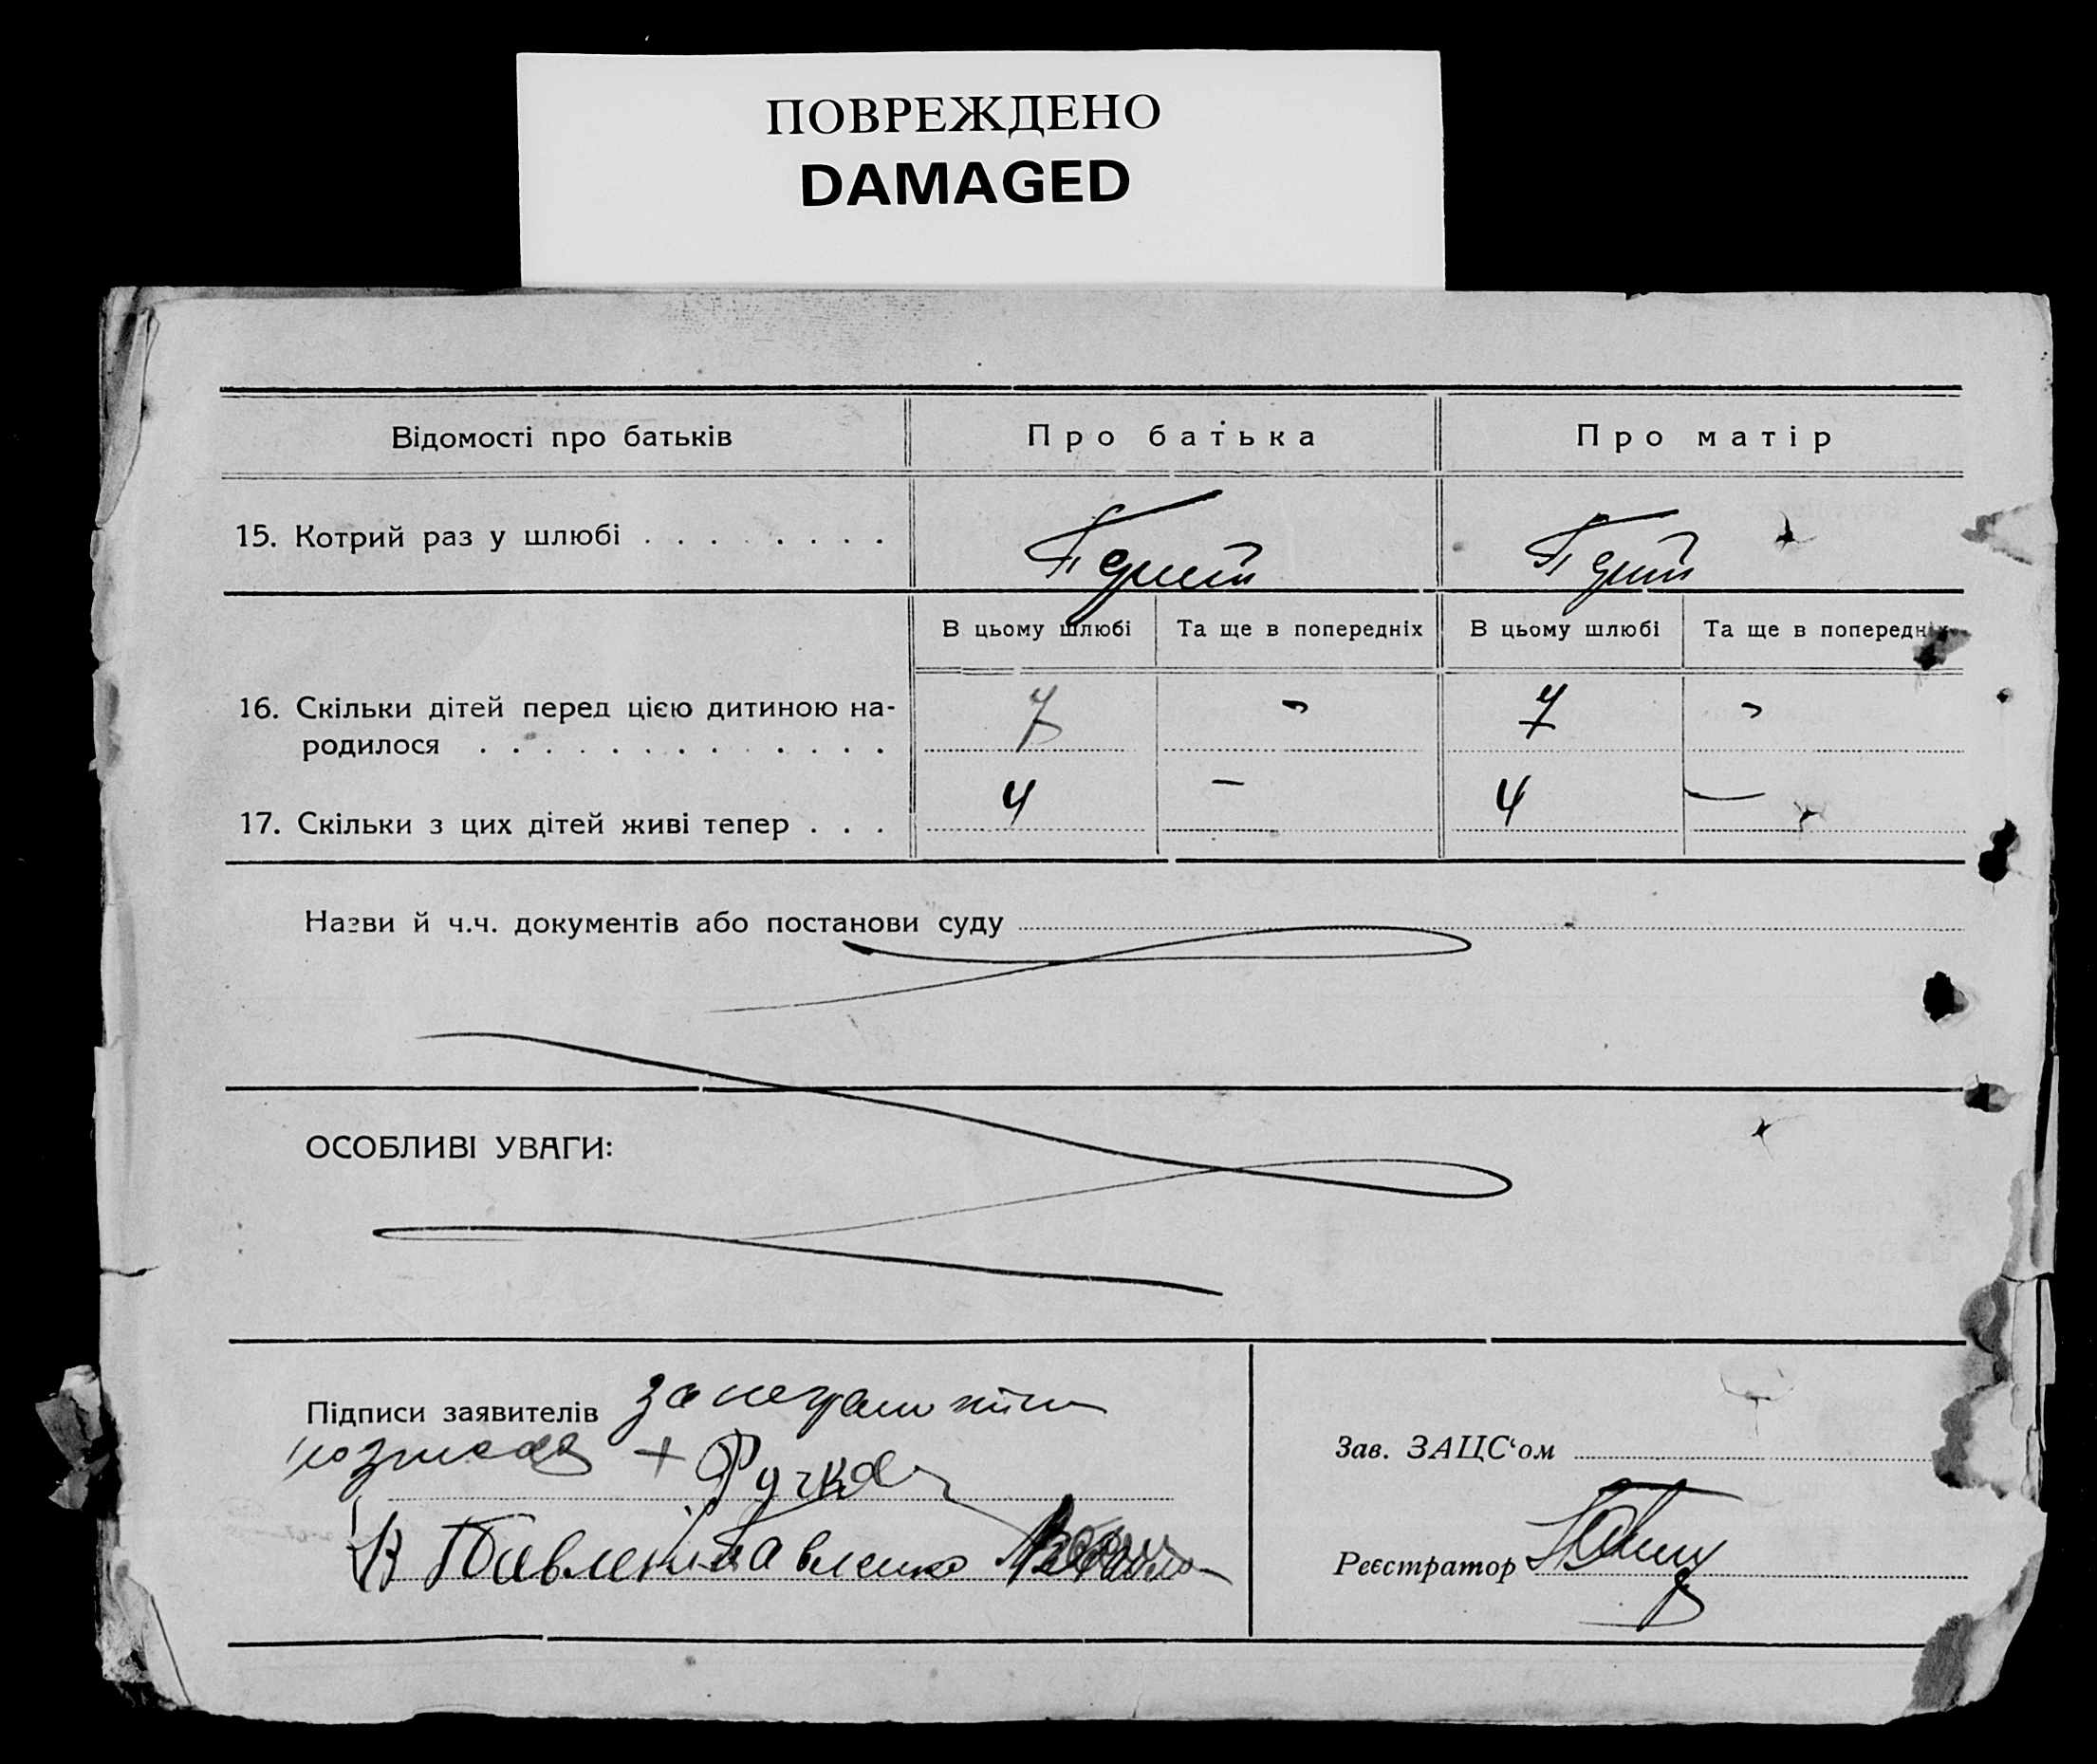 ПОВРЕЖДЕНО
DAMAGED
Відомості про батьків Про батька Про матір
15. Котрий раз у шлюбі . . . . . . . .
В цьому шлюбі Та ще в попередніх В цьому шлюбі Та ще в попередніх
16. Скільки дітей перед цією дитиною на-
родилося . . . . . . . . . . . . . 7 - 7 -
17. Скільки з цих дітей живі тепер . . . 4 - 4 -
Назви й ч.ч. документів або постанови суду
ОСОБЛИВІ УВАГИ:
Підписи заявителів
+
Зав. ЗАЦС‘ом
Павленко
Реєстратор